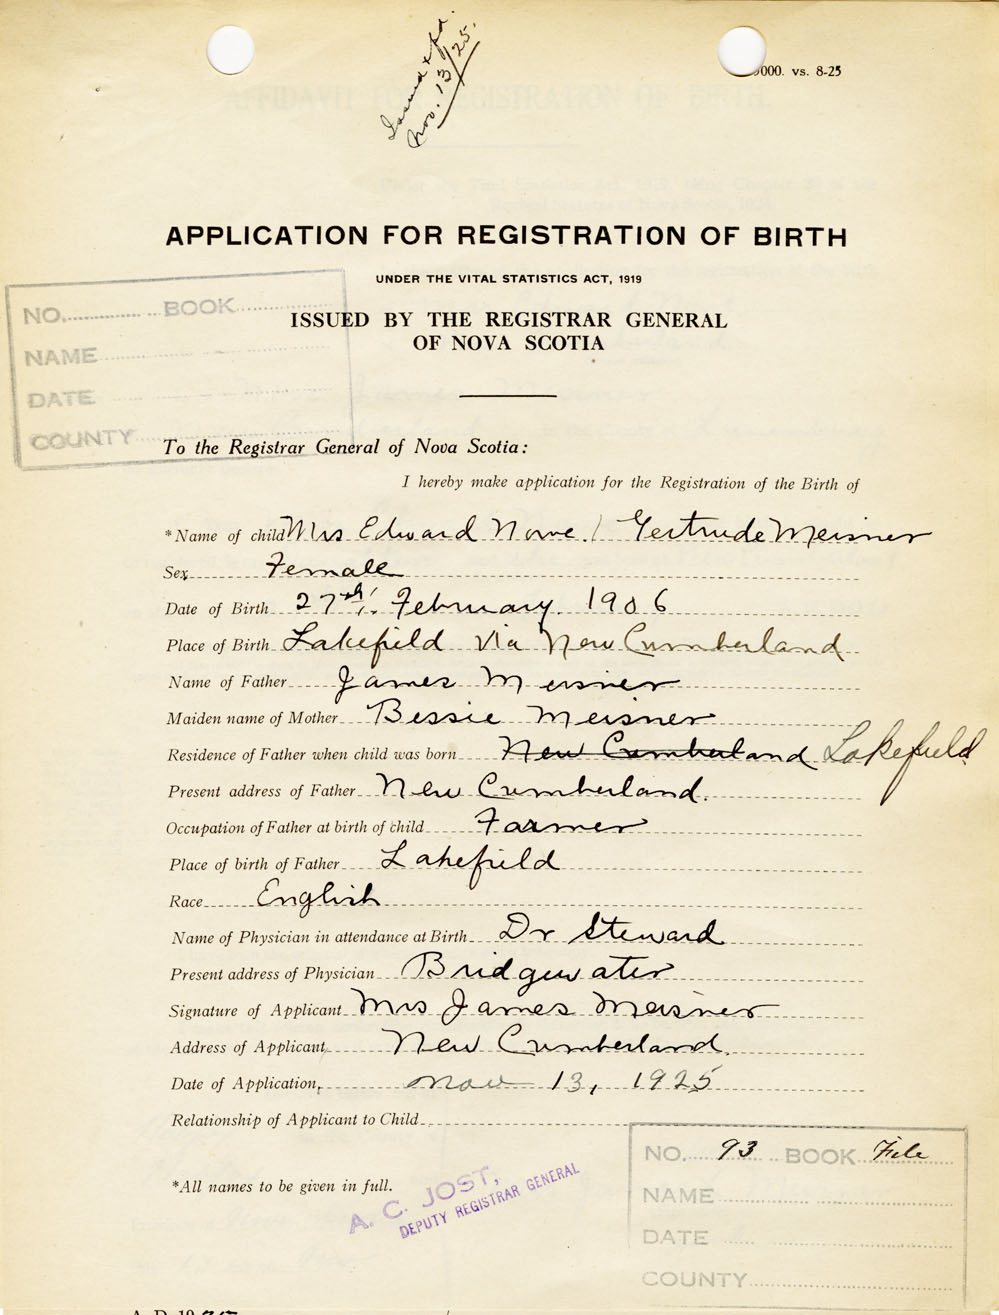 Issued & pd.
Nov. 13/25.
000. vs. 8-25
APPLICATION FOR REGISTRATION OF BIRTH
UNDER THE VITAL STATISTICS ACT, 1919
ISSUED BY THE REGISTRAR GENERAL
OF NOVA SCOTIA
NO. BOOK
NAME
DATE
COUNTY
To the Registrar General of Nova Scotia:
I hereby make application for the Registration of the Birth of
*Name of child Mrs Edward Nowe / Gertrude Meisner
Sex Female
Date of Birth 27th February. 1906
Place of Birth Lakefield Via New Cumberland
Name of Father James Meisner
Maiden name of Mother Bessie Meisner
Residence of Father when child was born New Cumberland Lakefield
Present address of Father New Cumberland.
Occupation of Father at birth of child Farmer
Place of birth of Father Lakefield
Race English
Name of Physician in attendance at Birth Dr Steward
Present address of Physician Bridgewater
Signature of Applicant Mrs James Meisner
Address of Applicant New Cumberland.
Date of Application, Nov 13, 1925
Relationship of Applicant to Child
*All names to be given in full.
A. C. JOST,
DEPUTY REGISTRAR GENERAL
NO. 93 BOOK File
NAME
DATE
COUNTY